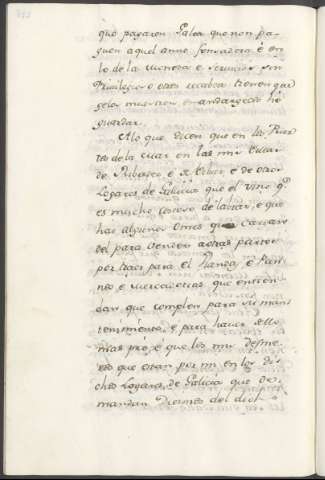 que pagaren Galea que non pa-
guen aquel anno fonsadera é en
lo de la moneda e servicios sin
Privilegio o otro recabdo tienen que
gelo muestren e mandargelo he
guardar.
A lo que dicen que en la Puer-
to de la mar en las mis Villas
de Ribadeo e de e de otros
Logares de Galicia que el vino q.e
es mucho costoso de labrar, e que
hai algunos Omes que cargan
del para vender a otras partes
por traer para el Pan, é Pan-
nos é mercadurias que entien-
den que complen para su man-
tenimiento, e para haver dello
mas pro, é que los mis desme-
ros que estan por mi en los di-
chos Logares de Galicia que de-
mandan Diesmos del dicho